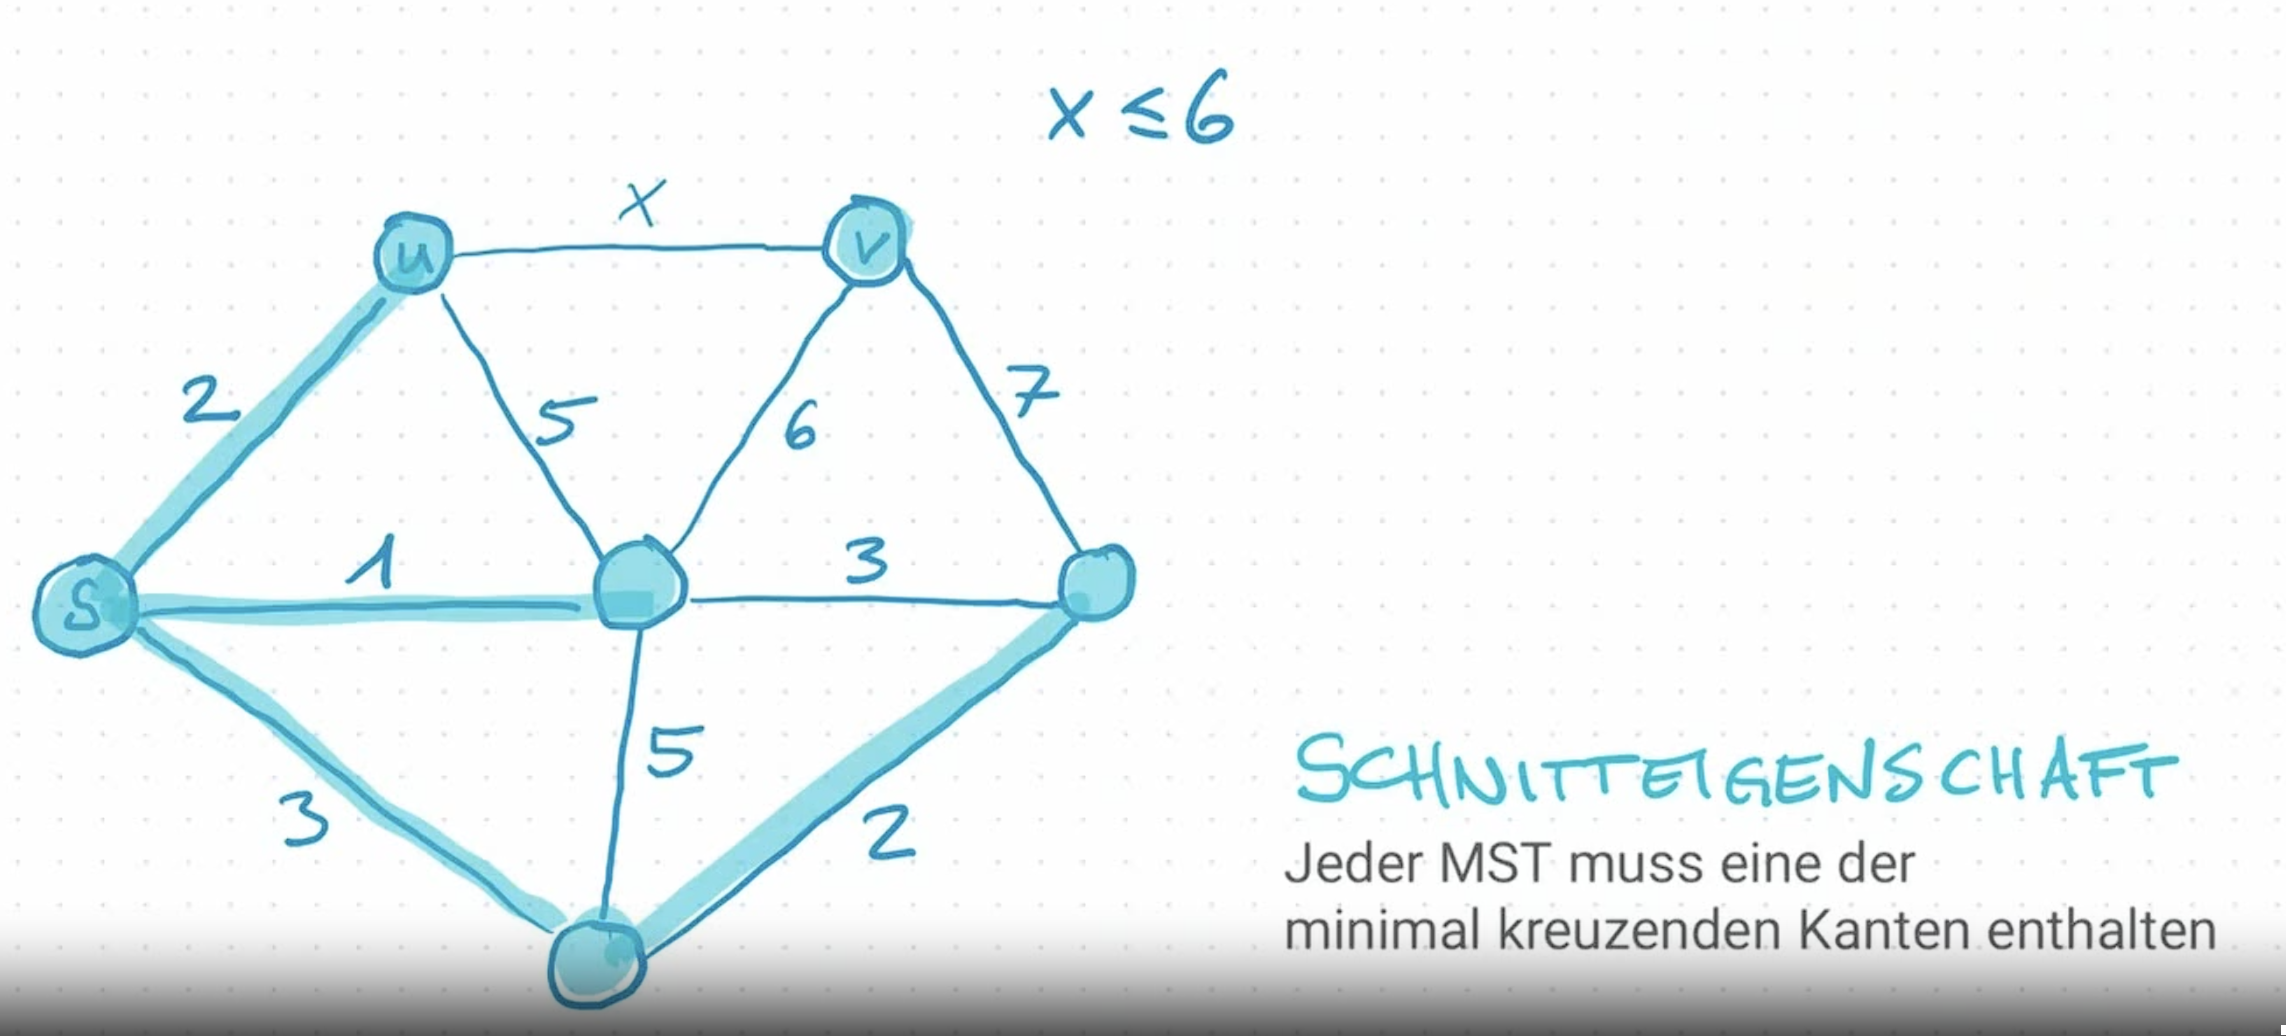 x ≤ 6
x
u
v
2
5
6
7
S
1
3
3
5
2
SCHNITTEIGENSCHAFT
Jeder MST muss eine der
minimal kreuzenden Kanten enthalten